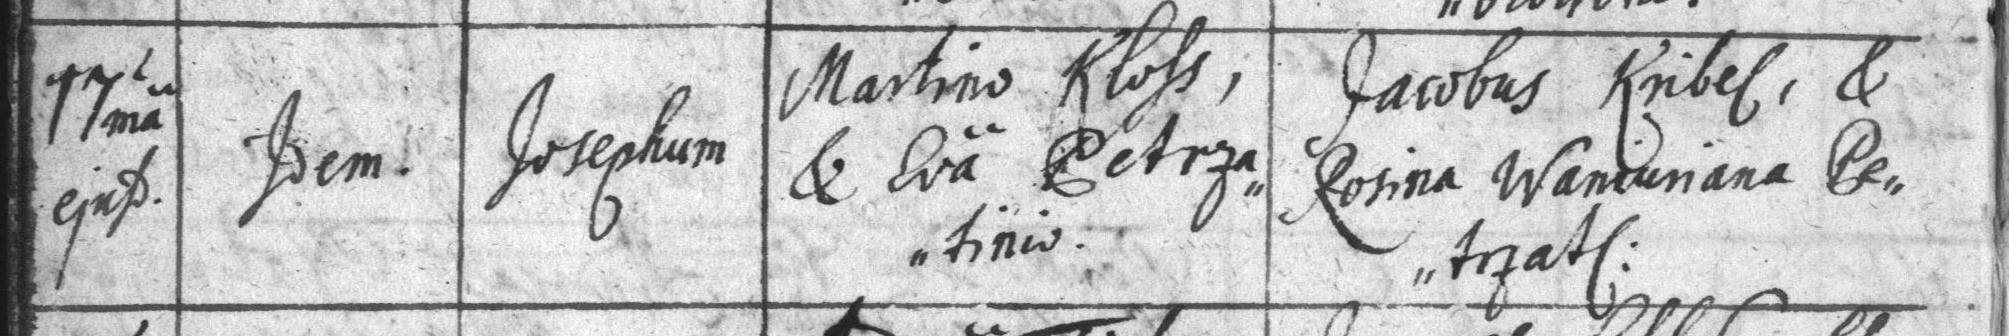 17
mã
ejusd.
Idem.
Josephum
Martino Kloss,
& Evã Petrza„
„tinio.
Jacobus Kribel, &
Rosina Wancuriana Pe„
„trzat: